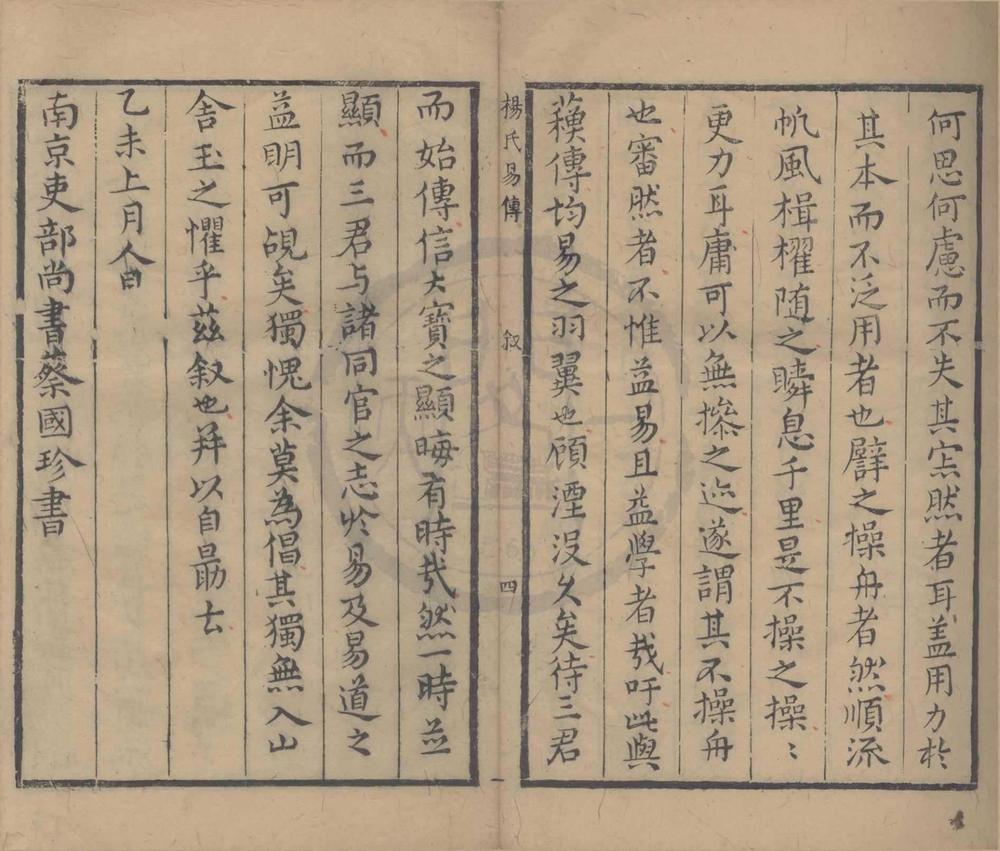 何思何慮而不失其寂然者耳盖用力於
其本而不泛用者也譬之操舟者然順流
帆風楫櫂随之瞬息千里是不操之操〻
更力耳庸可以無操之迹遂謂其不操舟
也審然者不惟益易且益學者㦲吁此與
蘓傳均易之羽翼也顧湮没久矣待三君
楊氏易傳
叙
四
而始傳信大寶之顯晦有時㦲然一時並
顯而三君与諸同官之志扵易及易道之
益明可硯矣獨愧余莫為倡其獨無入山
舎玉之懼乎茲叙也并以自勗云
乙未上月人日
南京吏部尚書蔡國珍書